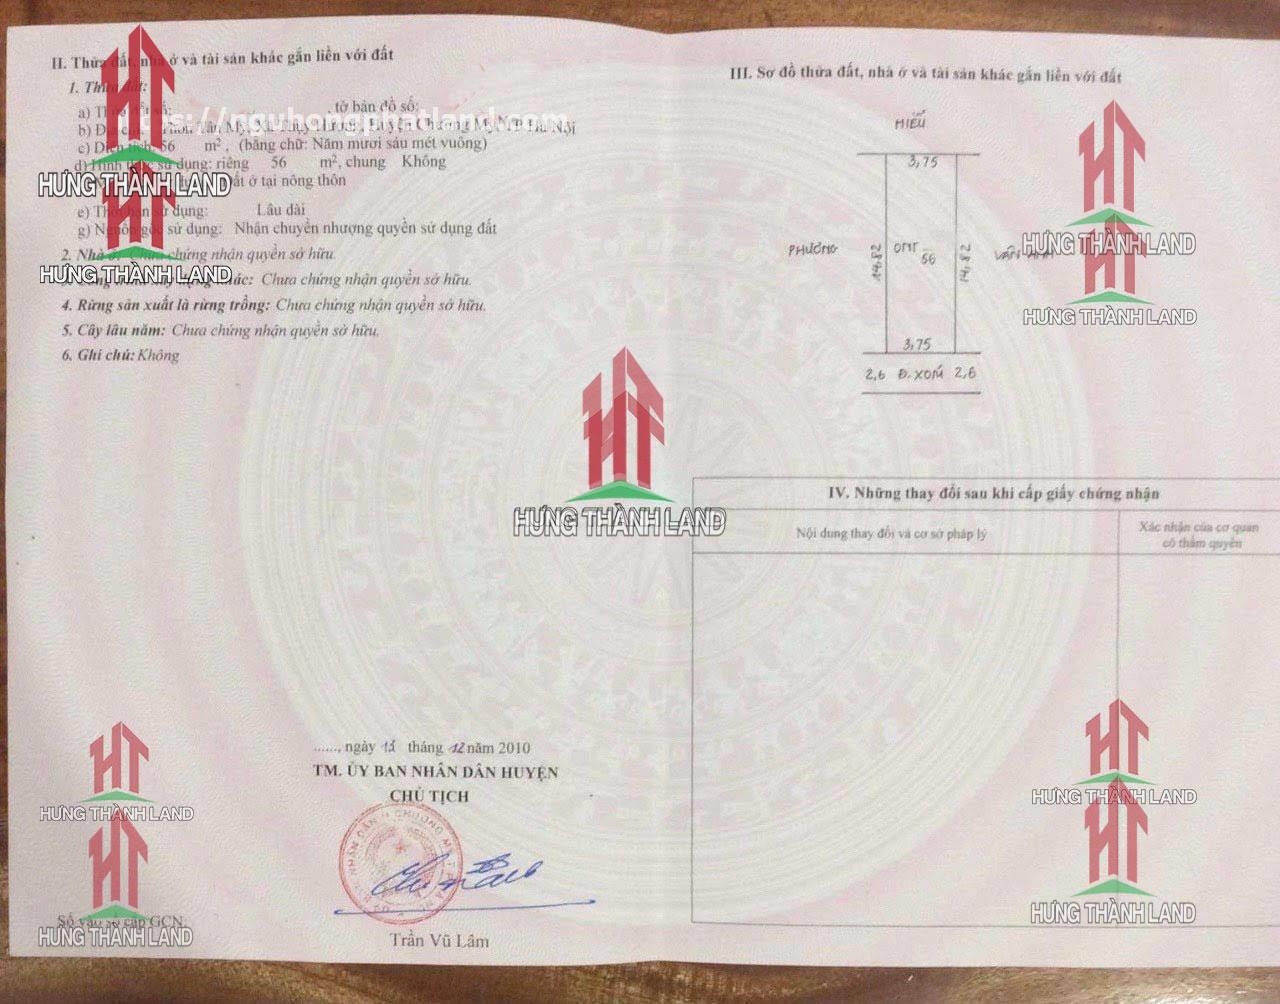 II. Thửa đất, nhà ở và tài sản khác gắn liền với đất
1. Thửa đất:
a) Thửa đất số: , tờ bản đồ số:
b) Địa chỉ: Thôn Tân Mỹ, Xã Thụy Hương, Huyện Chương Mỹ, TP Hà Nội
c) Diện tích: 56 m², (bằng chữ: Năm mươi sáu mét vuông)
d) Hình thức sử dụng: riêng 56 m², chung Không
đất ở tại nông thôn
e) Thời hạn sử dụng: Lâu dài
g) Nguồn gốc sử dụng: Nhận chuyển nhượng quyền sử dụng đất
2. Nhà ở: Chưa chứng nhận quyền sở hữu.
khác: Chưa chứng nhận quyền sở hữu.
4. Rừng sản xuất là rừng trồng: Chưa chứng nhận quyền sở hữu.
5. Cây lâu năm: Chưa chứng nhận quyền sở hữu.
6. Ghi chú: Không
https://nguhongphatland.com
......, ngày 15 tháng 12 năm 2010
TM. ỦY BAN NHÂN DÂN HUYỆN
CHỦ TỊCH
Trần Vũ Lâm
Số vào sổ cấp GCN:
III. Sơ đồ thửa đất, nhà ở và tài sản khác gắn liền với đất
HIẾU
3,75
PHƯƠNG
14,82
ONT
56
14,82
VĂN
3,75
2,6 Đ. XÓM 2,6
IV. Những thay đổi sau khi cấp giấy chứng nhận
Nội dung thay đổi và cơ sở pháp lý
Xác nhận của cơ quan
có thẩm quyền
HƯNG THÀNH LAND
HƯNG THÀNH LAND
HƯNG THÀNH LAND
HƯNG THÀNH LAND
HƯNG THÀNH LAND
HƯNG THÀNH LAND
HƯNG THÀNH LAND
HƯNG THÀNH LAND
HƯNG THÀNH LAND